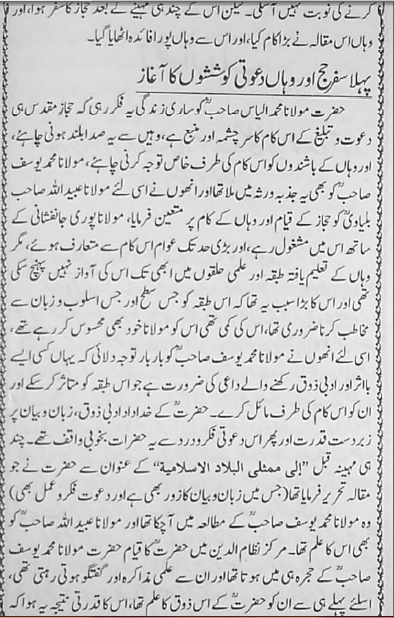 کرنے کی نوبت نہیں آسکی۔ لیکن اس کے چند ہی مہینے کے بعد حجاز کا سفر ہوا، اور
وہاں اس مقالہ نے بڑا کام کیا، اور اس سے وہاں پورا فائدہ اٹھایا گیا۔
پہلا سفر حج اور وہاں دعوتی کوششوں کا آغاز
حضرت مولانا محمد الیاس صاحبؒ کو ساری زندگی یہ فکر رہی کہ حجاز مقدس ہی
دعوت و تبلیغ کے اس کام کا سرچشمہ اور منبع ہے، وہیں سے یہ صدا بلند ہونی چاہئے،
اور وہاں کے باشندوں کو اس کام کی طرف خاص توجہ کرنی چاہئے، مولانا محمد یوسف
صاحبؒ کو بھی یہ جذبہ ورثہ میں ملا تھا اور انھوں نے اسی لئے مولانا عبید اللہ صاحب
بلیاویؒ کو حجاز کے قیام اور وہاں کے کام پر متعین فرمایا، مولانا پوری جانفشانی کے
ساتھ اس میں مشغول رہے، اور بڑی حد تک عوام اس کام سے متعارف ہوئے، مگر
وہاں کے تعلیم یافتہ طبقہ اور علمی حلقوں میں ابھی تک اس کی آواز نہیں پہنچ سکی
تھی اور اس کا بڑا سبب یہ تھا کہ اس طبقہ کو جس سطح اور جس اسلوب و زبان سے
مخاطب کرنا ضروری تھا، اس کی کمی تھی اس کو مولانا خود بھی محسوس کر رہے تھے،
اسی لئے انھوں نے مولانا محمد یوسف صاحبؒ کو بار بار توجہ دلائی کہ یہاں کسی ایسے
بااثر اور ادبی ذوق رکھنے والے داعی کی ضرورت ہے جو اس طبقہ کو متاثر کر سکے اور
ان کو اس کام کی طرف مائل کرے۔ حضرتؒ کے خداداد ادبی ذوق، زبان و بیان پر
زبردست قدرت اور پھر اس دعوتی فکر و درد سے یہ حضرات بخوبی واقف تھے۔ چند
ہی مہینہ قبل ”إلى ممثلى البلاد الاسلامية“ کے عنوان سے حضرت نے جو
مقالہ تحریر فرمایا تھا (جس میں زبان و بیان کا زور بھی ہے اور دعوت فکر و عمل بھی)
وہ مولانا محمد یوسف صاحبؒ کے مطالعہ میں آچکا تھا اور مولانا عبید اللہ صاحبؒ کو
بھی اس کا علم تھا۔ مرکز نظام الدین میں حضرتؒ کا قیام حضرت مولانا محمد یوسف
صاحبؒ کے حجرہ ہی میں ہوتا تھا اور ان سے علمی مذاکرہ اور گفتگو ہوتی رہتی تھی،
اسلئے پہلے ہی سے ان کو حضرتؒ کے اس ذوق کا علم تھا، اس کا قدرتی نتیجہ یہ ہوا کہ